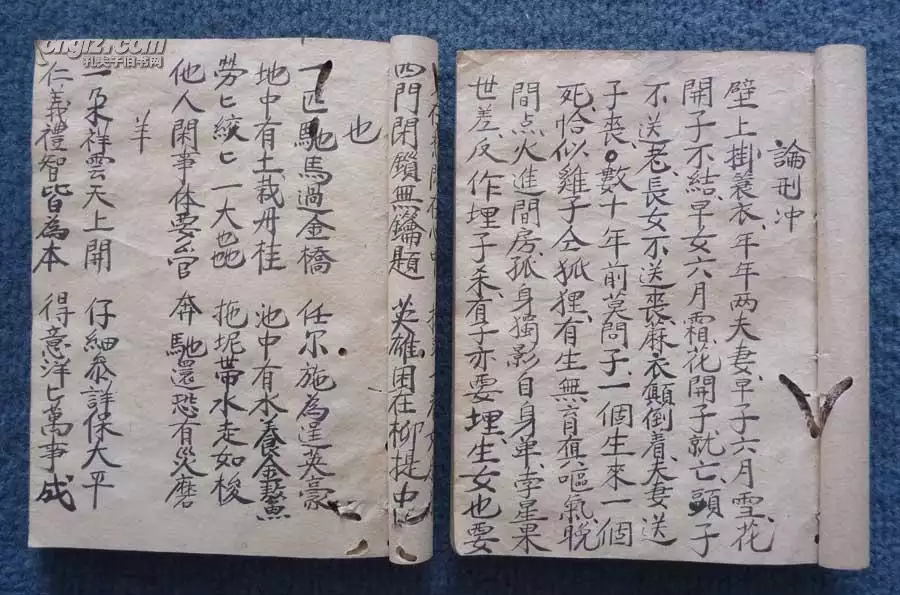 論刑冲
壁上掛蓑衣、年年两夫妻、早子六月雪、花
開子不結、早女六月霜、花開子就亡、頭子
不送老、長女不送喪、麻衣顛倒着、夫妻送
子喪。數十年前莫問子、一個生來一個
死、恰似雞子仝狐狸、有生無育真嘔氣、晚
間点火進間房、孤身獨影自身单、孛星果
世差、反作埋子杀、有子亦要埋、生女也要
四門閉鎖無鑰題 英雄困在柳提中
也
一匹馳馬過金橋 任尔施為逞英豪
地中有土栽丹桂 池中有水養金鰲
劳匕絞匕一大 拖坭帶水走如梭
他人閑事休要管 奔馳還恐有災磨
羊
一朶祥雲天上開 仔細参詳保太平
仁義禮智皆為本 得意洋匕萬事成
孔夫子旧书网